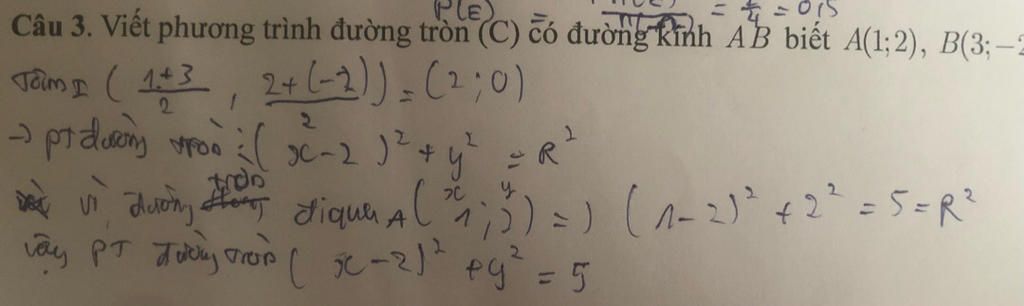 P(E) = = 2/4 = 0,5
Câu 3. Viết phương trình đường tròn (C) có đường kính AB biết A(1;2), B(3;−2
Tâm I ( (1+3)/2 , (2+(-2))/2 ) = (2;0)
→ PT đường tròn : (x-2)² + y² = R²
vì đường tròn đi qua A( x 1 ; y 2 ) => (1-2)² + 2² = 5 = R²
vậy PT đường tròn (x-2)² + y² = 5